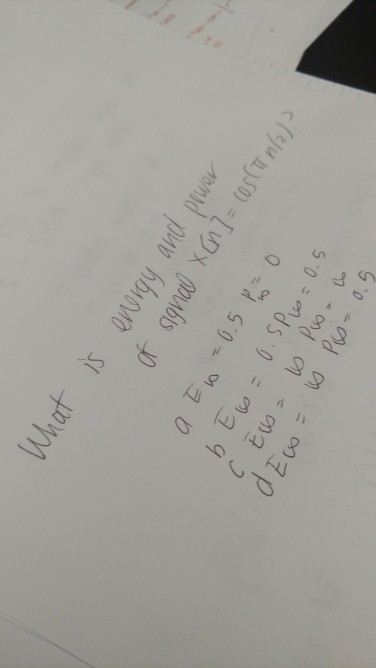 What is energy and power
of signal x[n] = cos(πn/2)?
a E∞ = 0.5 P∞ = 0
b E∞ = 0.5 P∞ = 0.5
c E∞ = ∞ P∞ = ∞
d E∞ = ∞ P∞ = 0.5